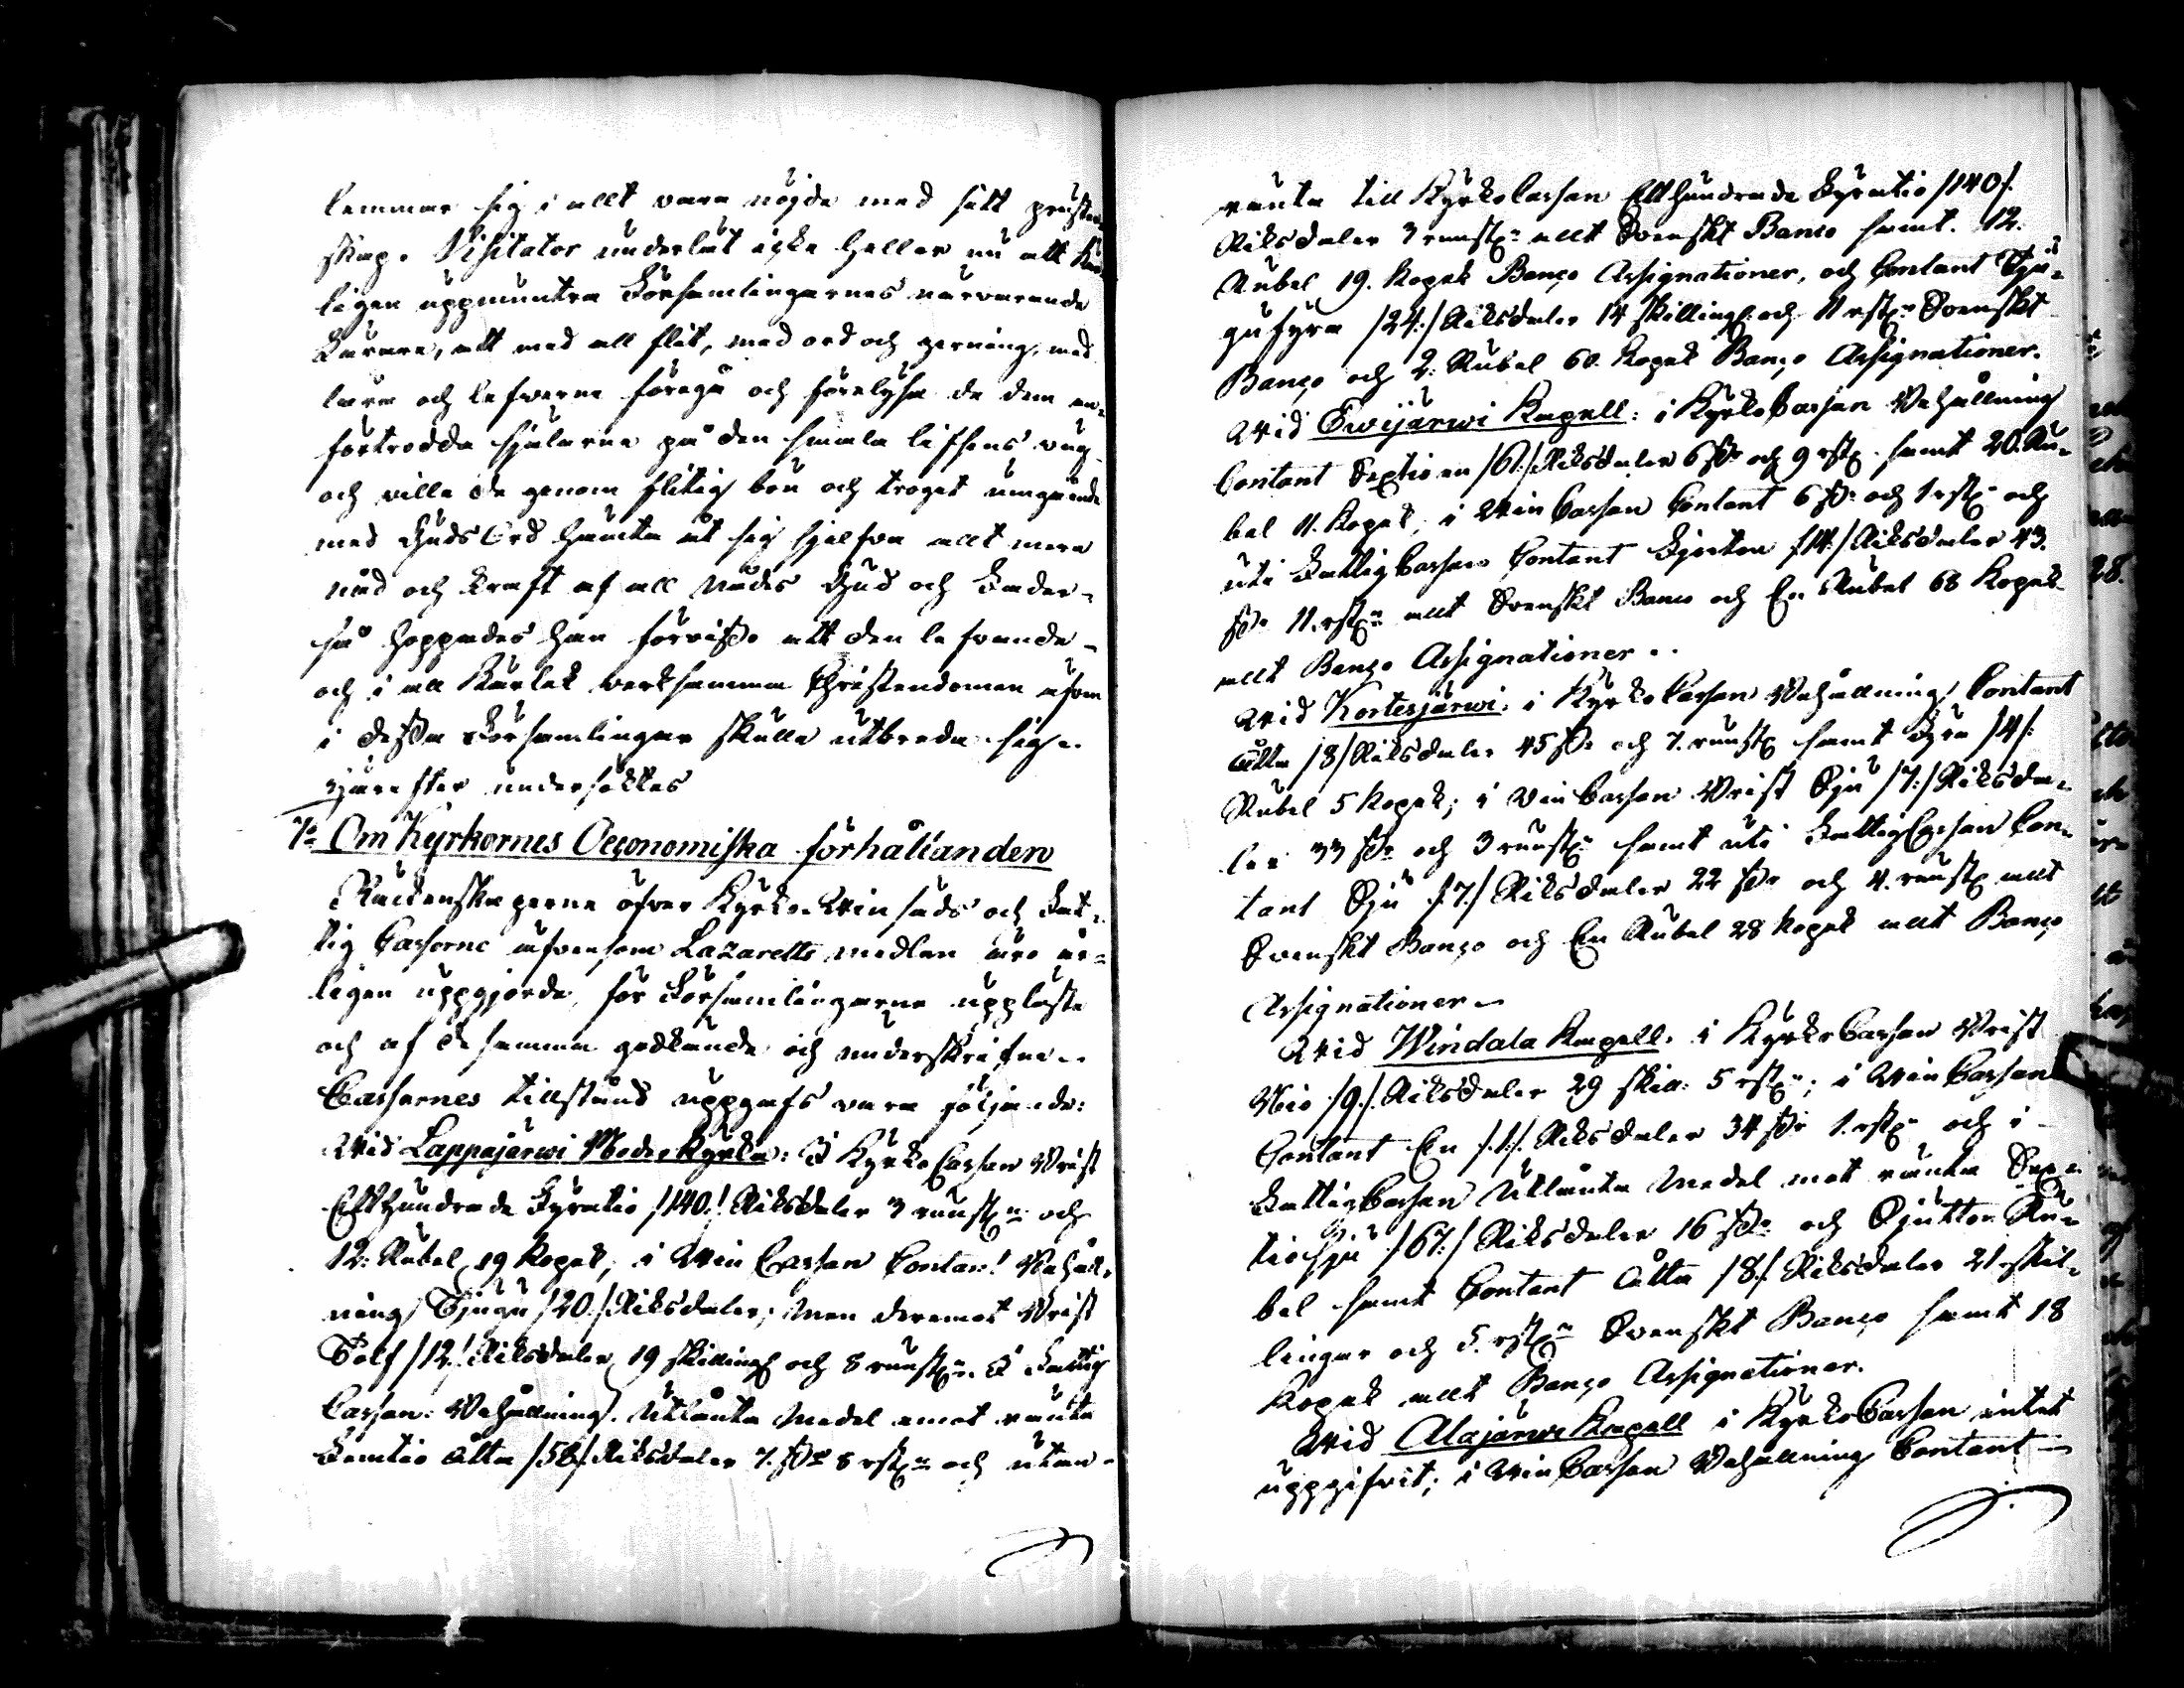 lemmar sig i allt vara nöjde med sitt prester
skap. Visitator underlät icke heller nu att
ligen uppmuntra Församlingarnes närvarande
Lärare, att med all flit, med ord och gerning, med
lära och lefverne föregå och förelysa de dem an-
förtrodda själarne på den smala lifsens väg
och ville de genom flitig bön och troget umgående
med Guds Ord hämta åt sig sjelfva allt mera
nåd och kraft af all nåds Gud och Fader-
så hoppades han förvisso att den lefvande-
och i all Kärlek verksamma Christendomen äfven
i dessa Församlingar skulle utbreda sig.
Härefter undersöktes
7o Om Kyrkornes Oeconomiska förhållanden
Räkenskaperne öfver Kyrko- Winsäds och Fat-
tig Cassorne äfvensom Lazaretts medlen äro år-
ligen uppgjorde, för Församlingarne uppläste
och af desamma godkände och underskrifne.
Cassornes tillstånd uppgafs vara följande:
Wid Lappajärwi Moderkyrka: I Kyrko Cassan Brist
Etthundrade Fyratio /140./ Riksdaler 3 runst:r och
12: Rubel 19 Kopek, i Win Cassan Contant Behåll-
ning Tjugu /20./ Riksdaler; Men deremot Brist
Tolf /12./ Riksdaler 19 skilling och 8 runst:r. I Fattig
Cassan: Behållning. Utlånta Medel emot ränta
Femtio åtta /58/ Riksdaler 7. sk: 8 rst:r och utan-
ränta till Kyrko Cassan Etthundrade Fyratio /140/.
Riksdaler 3 runst:r allt Svenskt Banco samt. 12.
Rubel 19. Kopek Banco Assignationer, och Contant Tju-
gufyra /24:/ Riksdaler 14 skilling och 11 rst:r Svenskt
Banco och 2: Rubel 60. Kopek Banco Assignationer.
Wid Ewijärwi Kapell: i Kyrko Cassan Behållning
Contant Sextioen /61/ Riksdaler 6 sk: och 9 rst: samt 20. Ru-
bel 11. Kopek, i Win Cassan Contant 6 sk: och 1 rst:r och
uti Fattig Cassan Contant Fjorton /14:/ Riksdaler 43.
sk: 11. rst:r allt Svenskt Banco och En Rubel 68 Kopek
allt Banco Assignationer.
Wid Kortesjärwi: i Kyrko Cassan Behållning Contant
Åtta /8/ Riksdaler 45 sk: och 7. runst: samt Fyra /4/:
Rubel 5 Kopek; i Win Cassan Brist Sju /7:/ Riksda-
ler 33 sk: och 3 runst:r samt uti Fattig Cassan Con-
tant Sju /:7./ Riksdaler 22 sk: och 4. runst: allt
Svenskt Banco och En Rubel 28 Kopek allt Banco
Assignationer
Wid Windala Kapell: i Kyrko Cassan Brist
Nio /9./ Riksdaler 29 skill: 5 rst:r; i Win Cassan
Contant En /.1./ Riksdaler 34 sk: 1. rst:r och i
Fattig Cassan Utlånta Medel mot ränta Sex-
tiosju /67:/ Riksdaler 16 sk: och Sjutton Ru-
bel samt Contant Åtta /8/. Riksdaler 21 skil-
lingar och 5. rst:r Svenskt Banco samt 18
Kopek allt Banco Assignationer.
Wid Alajärwi Kapell i Kyrko Cassan intet
uppgifvit; i Win Cassan Behållning Contant